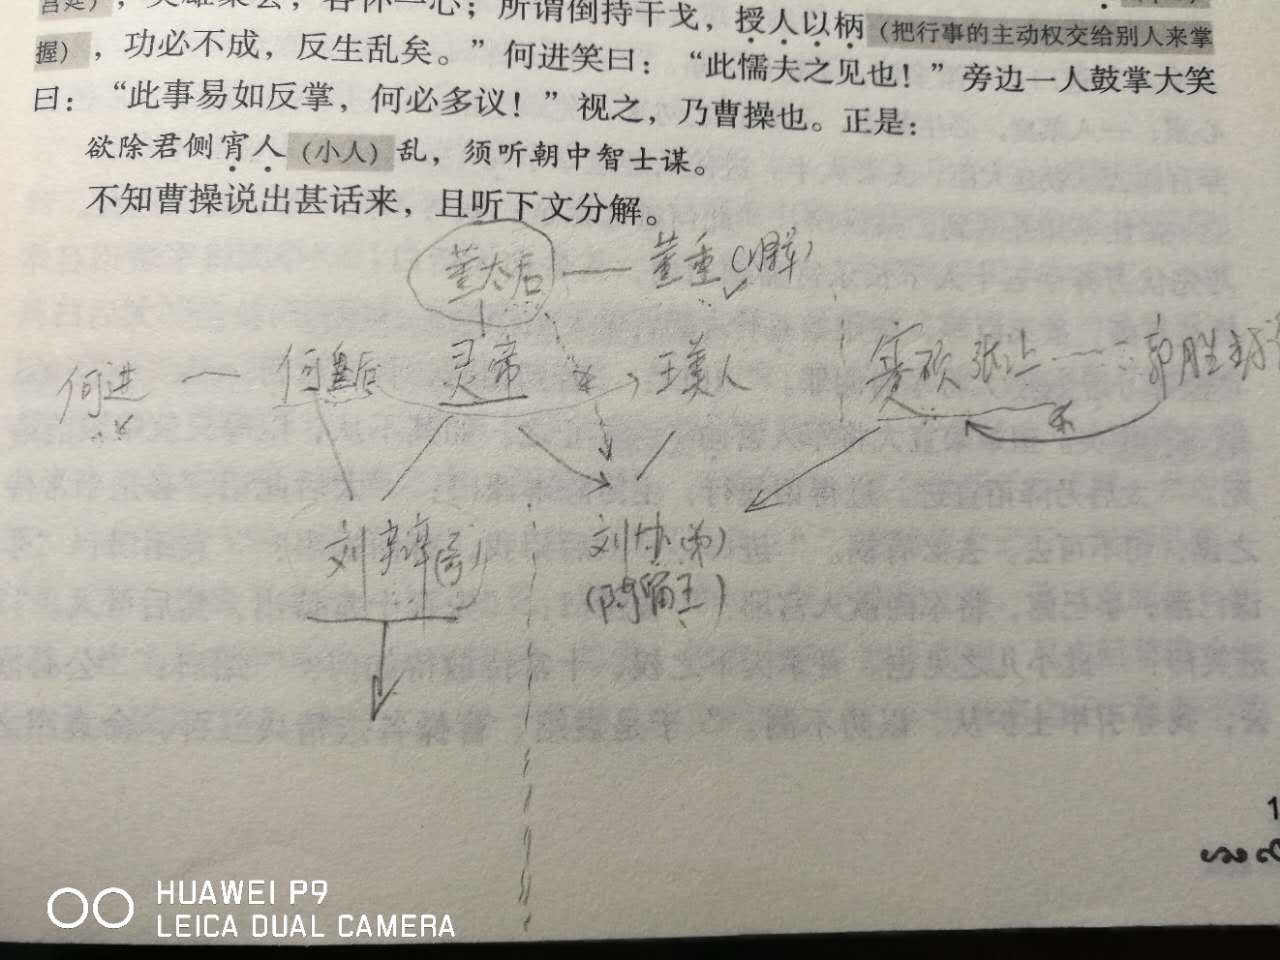 宫廷)，英雄聚会，各怀一心；所谓倒持干戈，授人以柄(把行事的主动权交给别人来掌
握)，功必不成，反生乱矣。”何进笑曰：“此懦夫之见也！”旁边一人鼓掌大笑
曰：“此事易如反掌，何必多议！”视之，乃曹操也。正是：
欲除君侧宵人(小人)乱，须听朝中智士谋。
不知曹操说出甚话来，且听下文分解。
董太后 — 董重
何进 — 何皇后 灵帝 王美人 蹇硕 张让 郭胜
刘辩(哥) 刘协(弟)
(陈留王)
1
HUAWEI P9
LEICA DUAL CAMERA